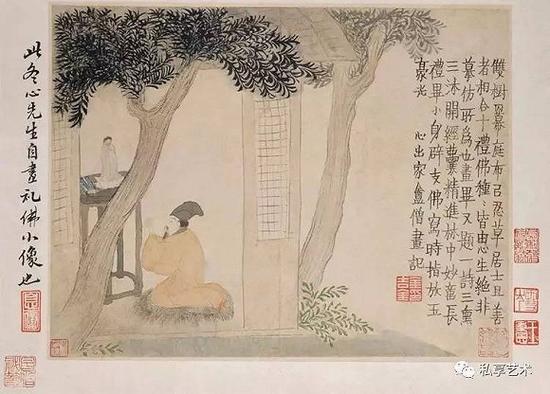 雙樹冪庭布㠯忍草居士善
者相合十禮佛種〻皆由心生絕非
摹仿所為也畫畢又題一詩三熏
三沐開經囊精進林中妙長
禮畢小身辟支佛寫時指放玉
毫光 心出家盦僧畫記
此冬心先生自畫礼佛小像也
私享艺术